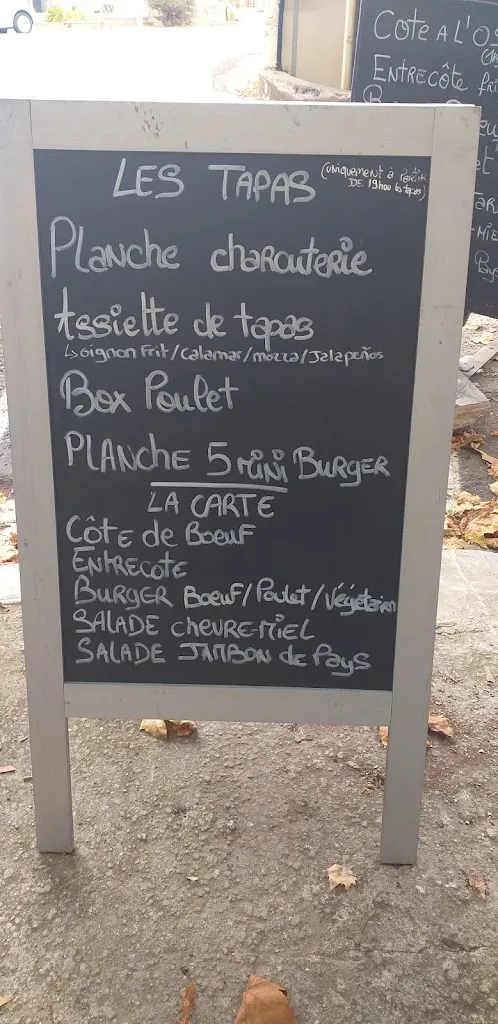 LES TAPAS (UNiquement à partir
DE 19h00 les tapas)
Planche charcuterie
Assiette de tapas
↳ oignon Frit/calamar/mozza/Jalapeños
Box Poulet
PLANche 5 miNi BURGER
LA CARTE
Côte de Boeuf
ENtRECOTE
BURGER BOEUF/Poulet/Végétarien
SALADE CHEVRE-MiEL
SALADE JAMBON de Pays
COTE A L'OS
ENTRECÔte frit